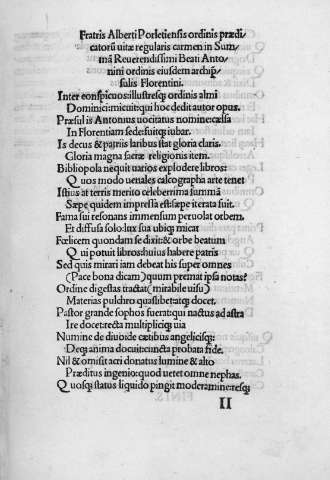 Fratris Alberti Porletiensis ordinis prædi
catorũ uitæ regularis carmen in Sum
mã Reuerendissimi Beati Anto
nini ordinis eiusdem archip̃
sulis Florentini.
Inter conspicuos illustresq; ordinis almi
Dominici: micuit: qui hoc dedit autor opus.
Præsul is Antonius uocitatus nomine: cælsa
In Florentiam sede fuitq; iubar.
Is decus & patriis laribus stat gloria claris.
Gloria magna sacræ religionis item.
Bibliopola nequit uarios explodere libros:
Quos modo uenales calcographa arte tenet
Istius at terris merito celeberrima summã
Sæpe quidem impressa est: sæpe iterata fuit.
Fama sui resonans immensum peruolat orbem.
Et diffusa solo: lux sua ubiq; micat
Fœlicem quondam se dixit: & orbe beatum
Qui potuit libros: huius habere patris
Sed quis mirari iam debeat his super omnes
(Pace bona dicam) quum premat ipsa notas?
Ordine digestas tractat (mirabile uisu)
Materias pulchro quaslibet: atq; docet.
Pastor grande sophos fuerat: qui nactus ad astra
Ire docet: recta multipliciq; uia
Numine de diuo: de cætibus angelicisq;:
Deq; anima docuit: cuncta probata fide.
Nil & omisit acri donatus lumine & alto
Præditus ingenio: quod uetet omne nephas.
Quosq; status liquido pingit moderamine: resq;
II
FINIS